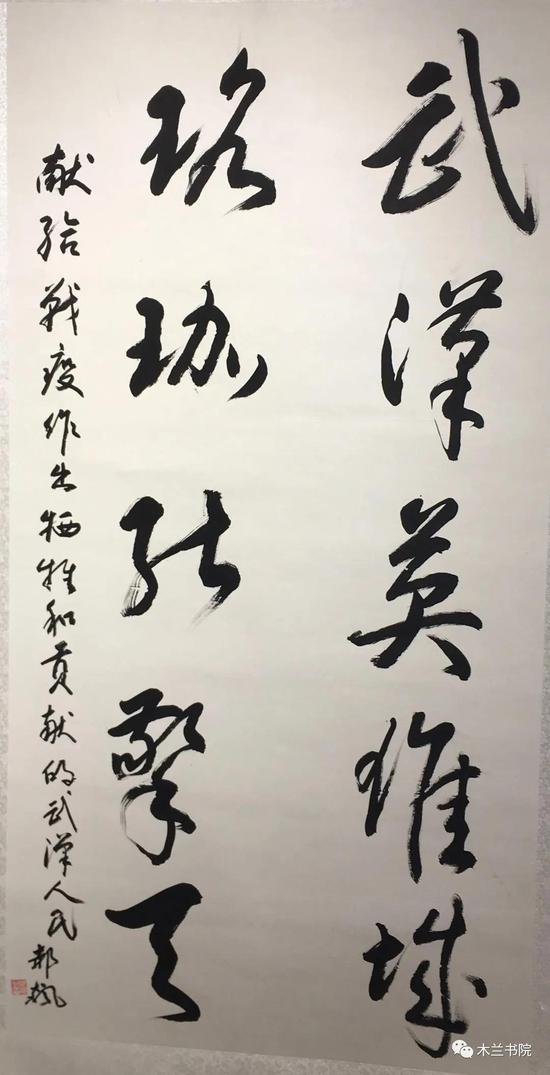 武漢英雄城
珞珈能擎天
献给战疫作出牺牲和贡献的武漢人民 郝枫
木兰书院